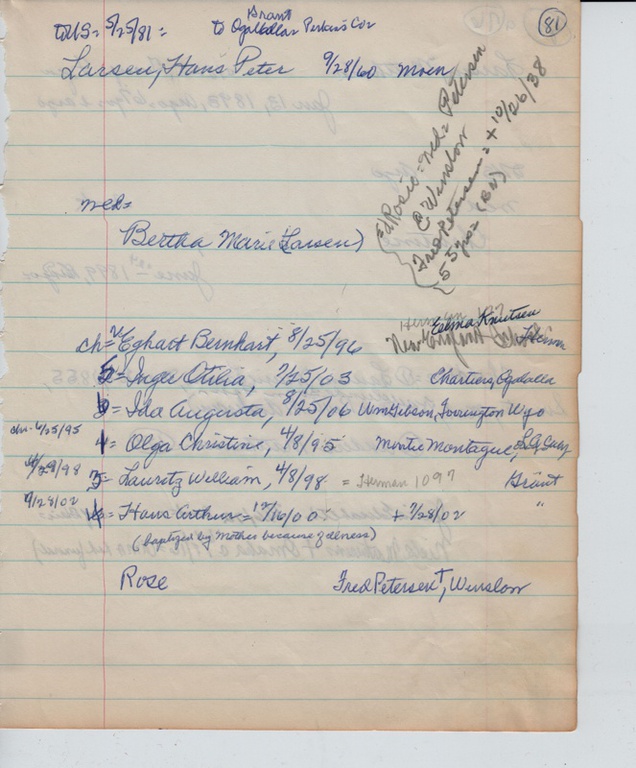 81
Grant
to US = 5/25/81 = to Ogallala Perkins Co
Larsen, Hans Peter 9/28/60 Moen
{ Rosie = md = Petersen
@ Winslow
Fred Petersen = + 10/26/38
55 yrs (BN)
md=
Bertha Marie (Larsen)
Herman 1097
Selma Knutsen
Near
ch= Eghart Bernhart, 8/25/96
= Inga Otilia, 7/25/03 Charters, Ogallala
= Ida Augusta, 8/25/06 Wm Gibson, Torrington Wyo
chr. 6/25/95
= Olga Christine, 4/8/95 Montie Montague,
4/29/98
= Lauritz William, 4/8/98 = Herman 1097 Grant
9/28/02
= Hans Arthur = 12/16/00 + 7/28/02 "
(baptized by Mother because of illness)
Rose Fred Petersen †, Winslow